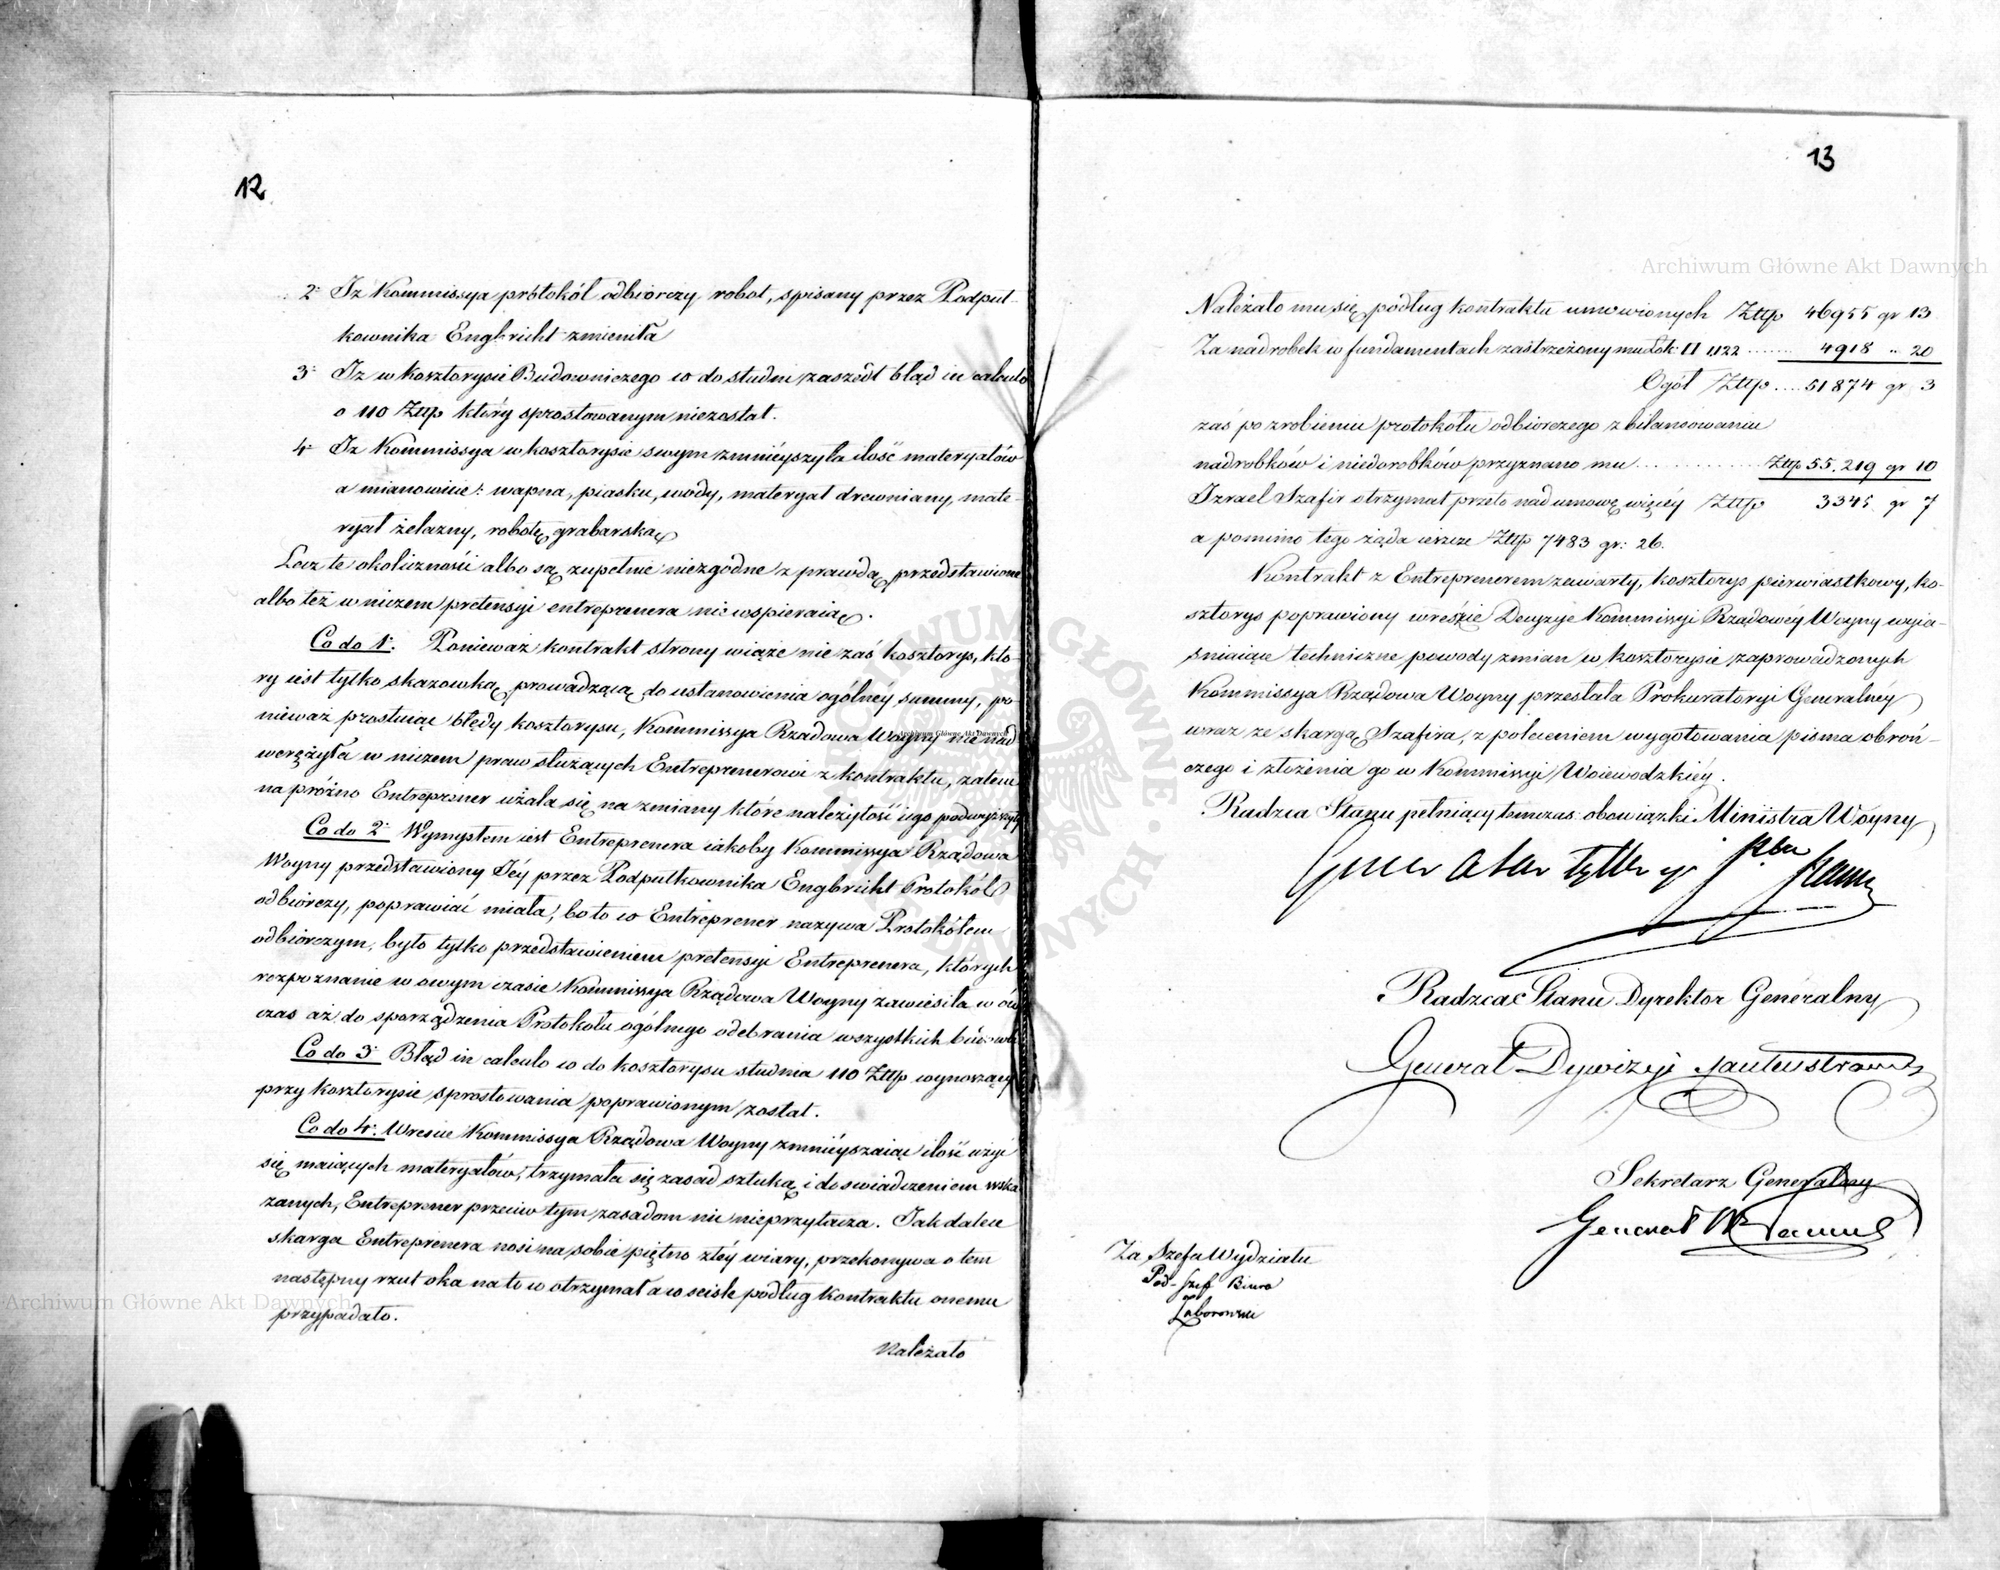 12
2° Iż Kommissya prótokół odbiorczy robot, spisany przez Podpuł-
kownika Engbricht zmieniła
3° Iż w kosztorysie Budowniczego co do studni zaszedł błąd in calculo
o 110 Złłp który sprostowanym niezostał.
4° Iż Kommissya w kosztorysie swym zmniéyszyła ilość materyałów
a mianowicie: wapna, piasku, wody, materyał drewniany, mate-
ryał żelazny, robotę grabarską
Lecz te okoliczności albo są zupełnie niezgodne z prawdą przedstawione
albo też w niczem pretensyi entreprenera nie wspieraią.
Co do 1°. Ponieważ kontrakt strony wiąże nie zaś kosztorys, któ-
ry iest tylko skazowką prowadzącą do ustanowienia ogólnéy summy, po
nieważ prostuiąc błędy kosztorysu, Kommissya Rządowa Woyny nie nad
werężyła w niczem praw służących Entreprenerowi z kontraktu, zatem
na próżno Entreprener użala się na zmiany które należytość iego podwyższyły
Co do 2° Wymysłem iest Entreprenera iakoby Kommissya Rządowa
Woyny przedstawiony Jéy przez Podpułkownika Engbricht Protokół
odbiorczy, poprawiać miała, bo to co Entreprener nazywa Protokółem
odbiorczym, było tylko przedstawieniem pretensyi Entreprenera, których
rozpoznanie w owym czasie Kommissya Rządowa Woyny zawiesiła w ów
czas aż do sporządzenia Protokołu ogólnego odebrania wszystkich budowli
Co do 3° Błąd in calculo co do kosztorysu studnia 110 Złłp wynoszący
przy kosztorysie sprostowania poprawionym został.
Co do 4°. Wrescie Kommissya Rządowa Woyny zmniéyszaiąc ilość użyć
się maiących materyałów, trzymała się zasad sztuką i doswiadczeniem wska
zanych, Entreprener przeciw tym zasadom nic nieprzytacza. Jak dalece
skarga Entreprenera nosi na sobie piętno złéy wiary, przekonywa o tem
następny rzut oka na to co otrzymał a co scisle podług Kontraktu onemu
przypadało.
Należało
13
Należało mu się podług kontraktu umowionych Złłp 46955 gr 13
Za nadrobek w fundamentach zastrzeżony mu Łok: II 1,122 ...... 4918 .. 20
Ogół Złłp .... 51874 gr 3
zaś po zrobieniu protokółu odbiorczego z bilansowaniu
nadrobków i niedorobków przyznano mu ............ Złłp 55,219 gr 10
Izrael Szafir otrzymał przeto nad umowę więcéy Złłp 3345 gr 7
a pomimo tego żąda ieszcze Złłp 7483 gr: 26.
Kontrakt z Entreprenerem zawarty, kosztorys pierwiastkowy, ko-
sztorys poprawiony wreście Decyzye Kommissyi Rządowéy Woyny wyia-
sniaiące techniczne powody zmian w kosztorysie zaprowadzonych
Kommissya Rządowa Woyny przesłała Prokuratoryi Generalnéy
wraz ze skargą Szafira, z poleceniem wygotowania pisma obroń-
czego i złożenia go w Kommissyi Woiewodzkiéy.
Radzca Stanu pełniący tymczas: obowiązki Ministra Woyny
Radzca Stanu Dyrektor Generalny
Generał Dywizyi
Sekretarz Generalny
Generał
Za Szefa Wydziału
Pod-Szef Biura
Archiwum Główne Akt Dawnych
Archiwum Główne Akt Dawnych
Archiwum Główne Akt Dawnych
ARCHIWUM GŁÓWNE AKT DAWNYCH